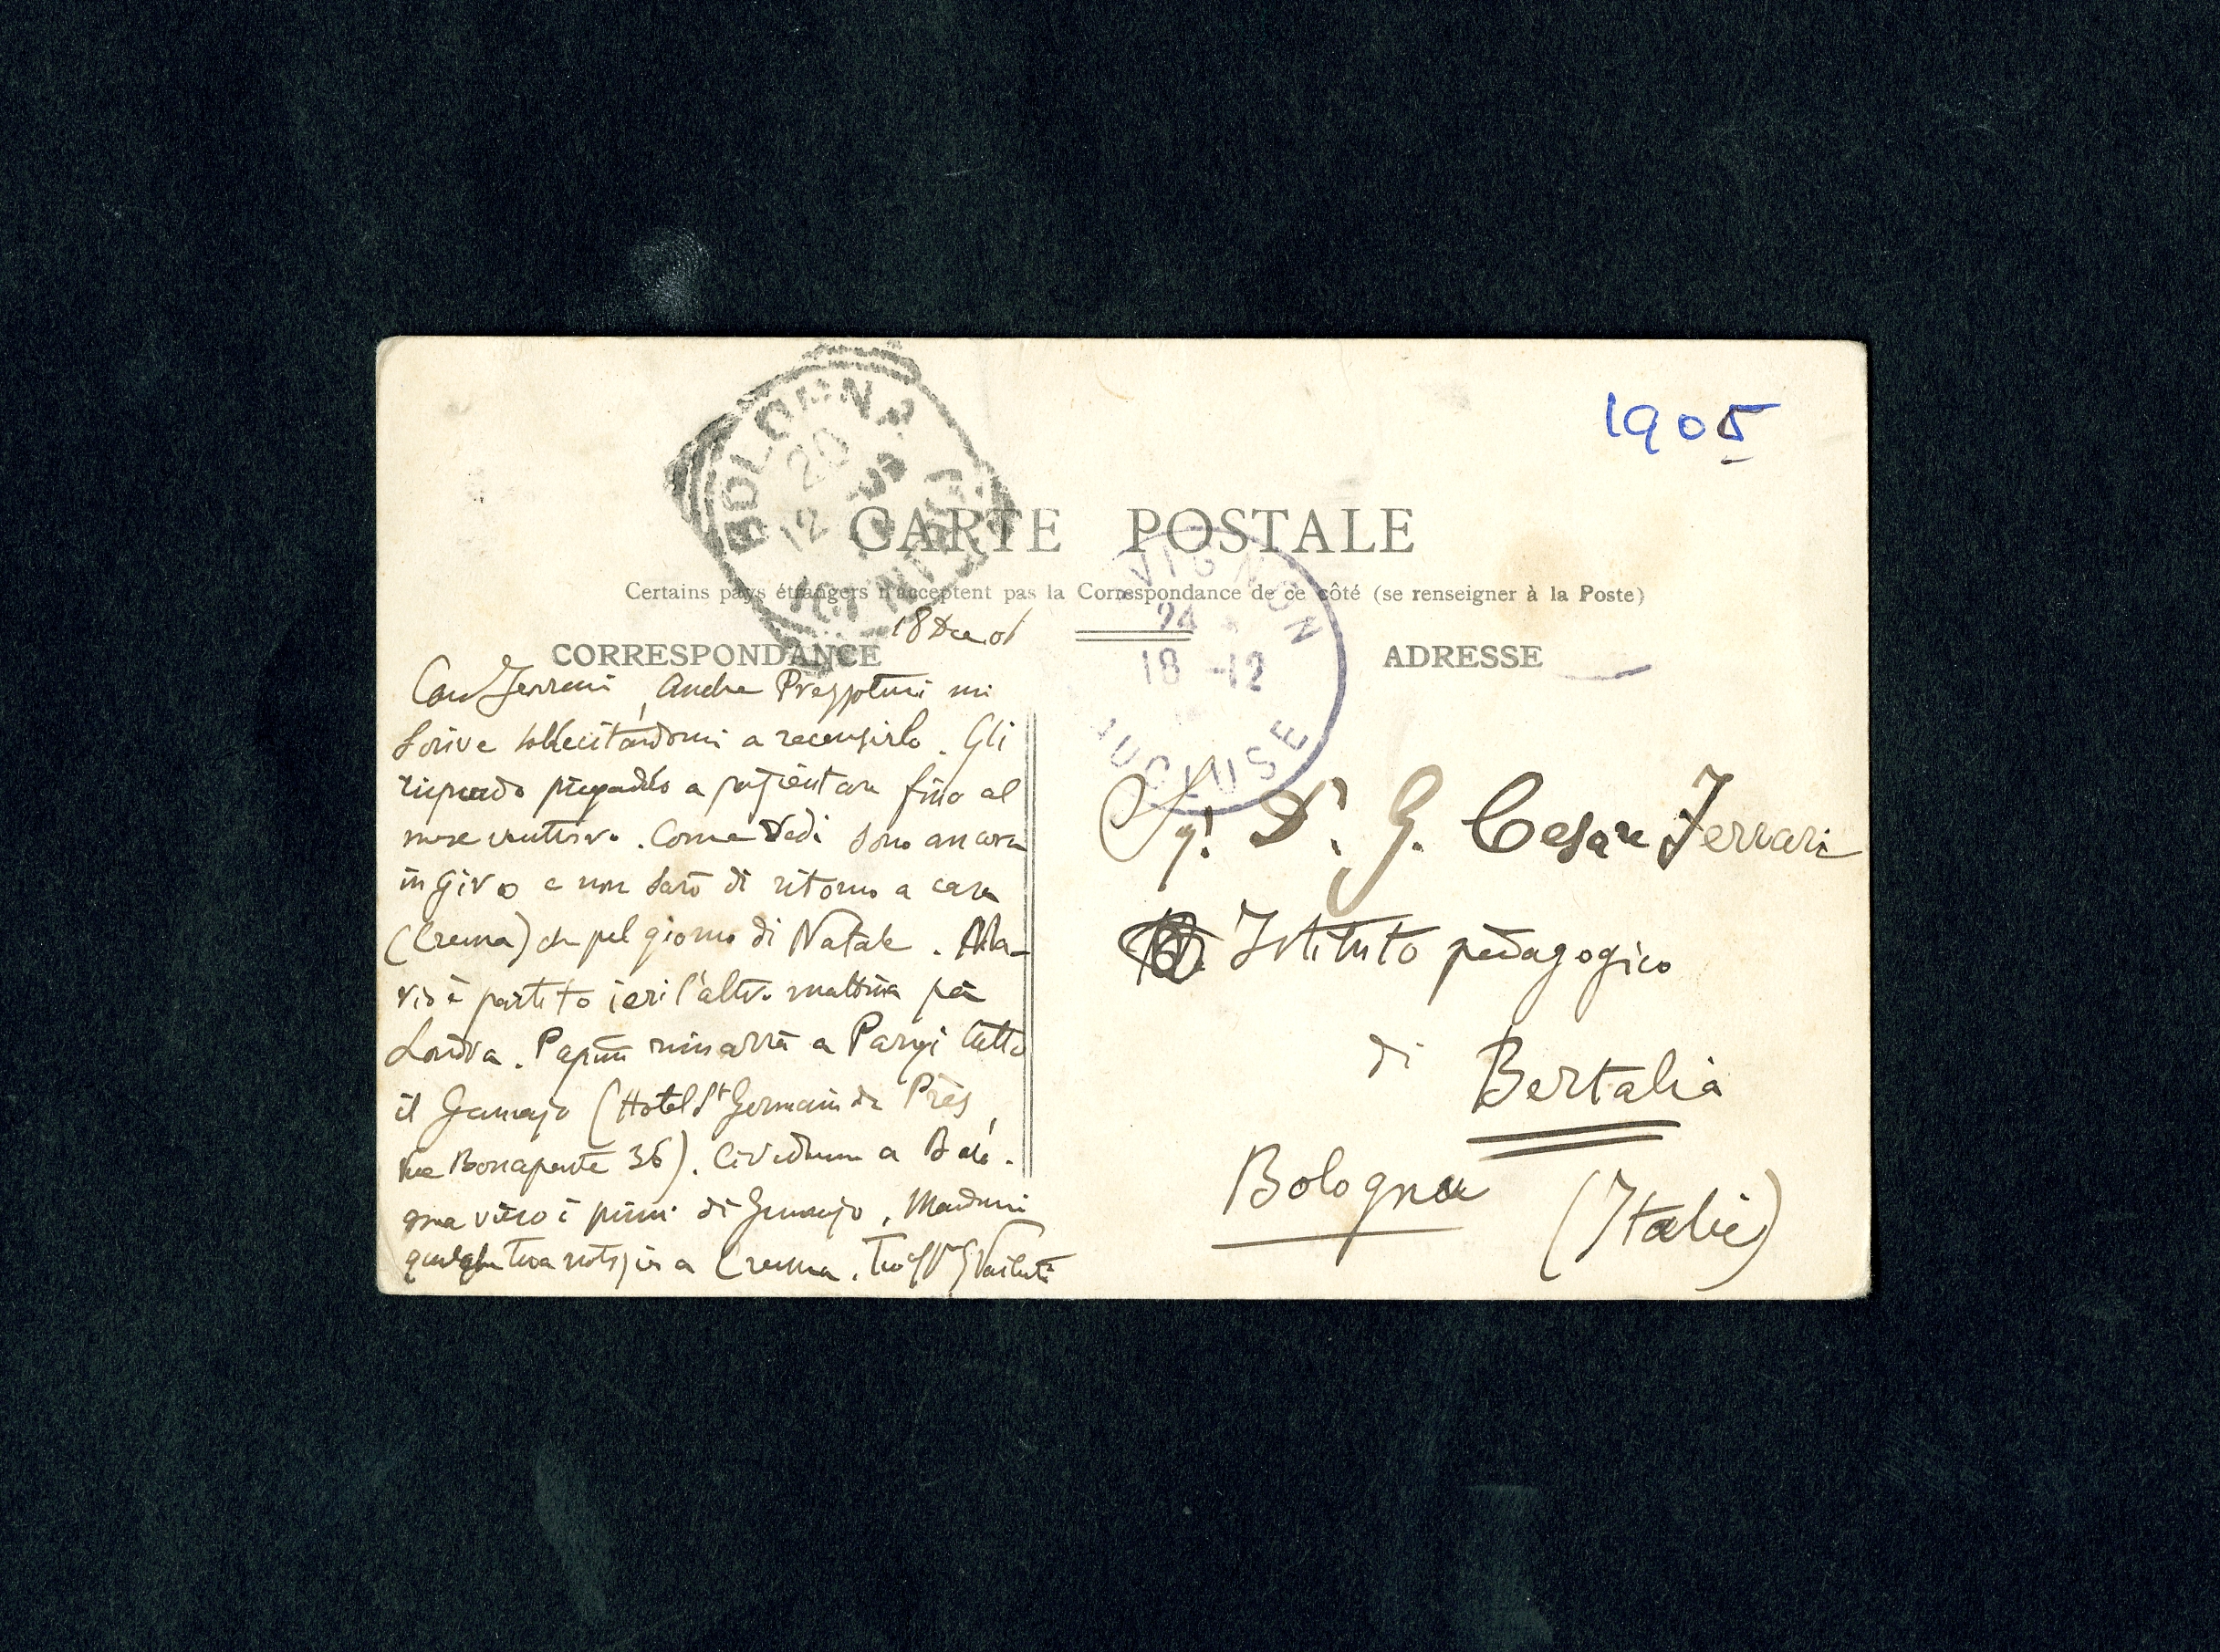 1905
BOLOGNA
20
12
CARTE POSTALE
AVIGNON
24
18 -12
VAUCLUSE
Certains pays étrangers n'acceptent pas la Correspondance de ce côté (se renseigner à la Poste)
18 Dec 06
CORRESPONDANCE
ADRESSE
Caro Ferrari, Anche Prezzolini mi
scrive sollecitandomi a recensirlo. Gli
rispondo pregandolo a pazientare fino al
mese venturo. Come vedi sono ancora
in giro e non sarò di ritorno a casa
(Crema) che pel giorno di Natale.
è partito ieri l'altro mattina per
Londra. Papini rimarrà a Parigi tutto
il Gennajo (Hotel St Germain des Près,
rue Bonaparte 36). Ci vedremo a
verso i primi di Gennajo. Mandami
qualche tua notizia a Crema. Tuo aff G Vailati
Sigr. Dr. G. Cesare Ferrari
Istituto pedagogico
di Bertalia
Bologna (Italie)